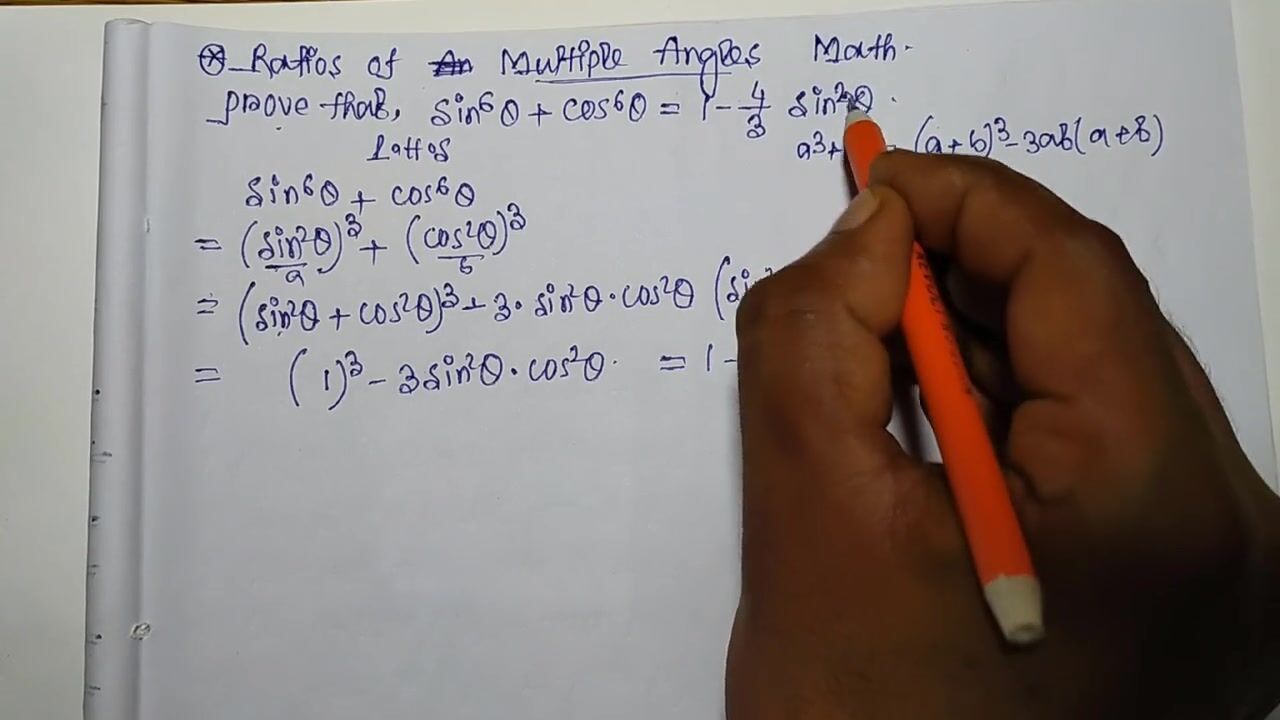 Ratios of Multiple Angles Math.
prove that, sin⁶θ + cos⁶θ = 1 - 4/3 sin²θ.
a³+ (a+b)³ - 3ab(a+b)
sin⁶θ + cos⁶θ
= (sin²θ)³ + (cos²θ)³
a b
= (sin²θ + cos²θ)³ - 3. sin²θ.cos²θ (sin²
= (1)³ - 3sin²θ.cos²θ. = 1 -